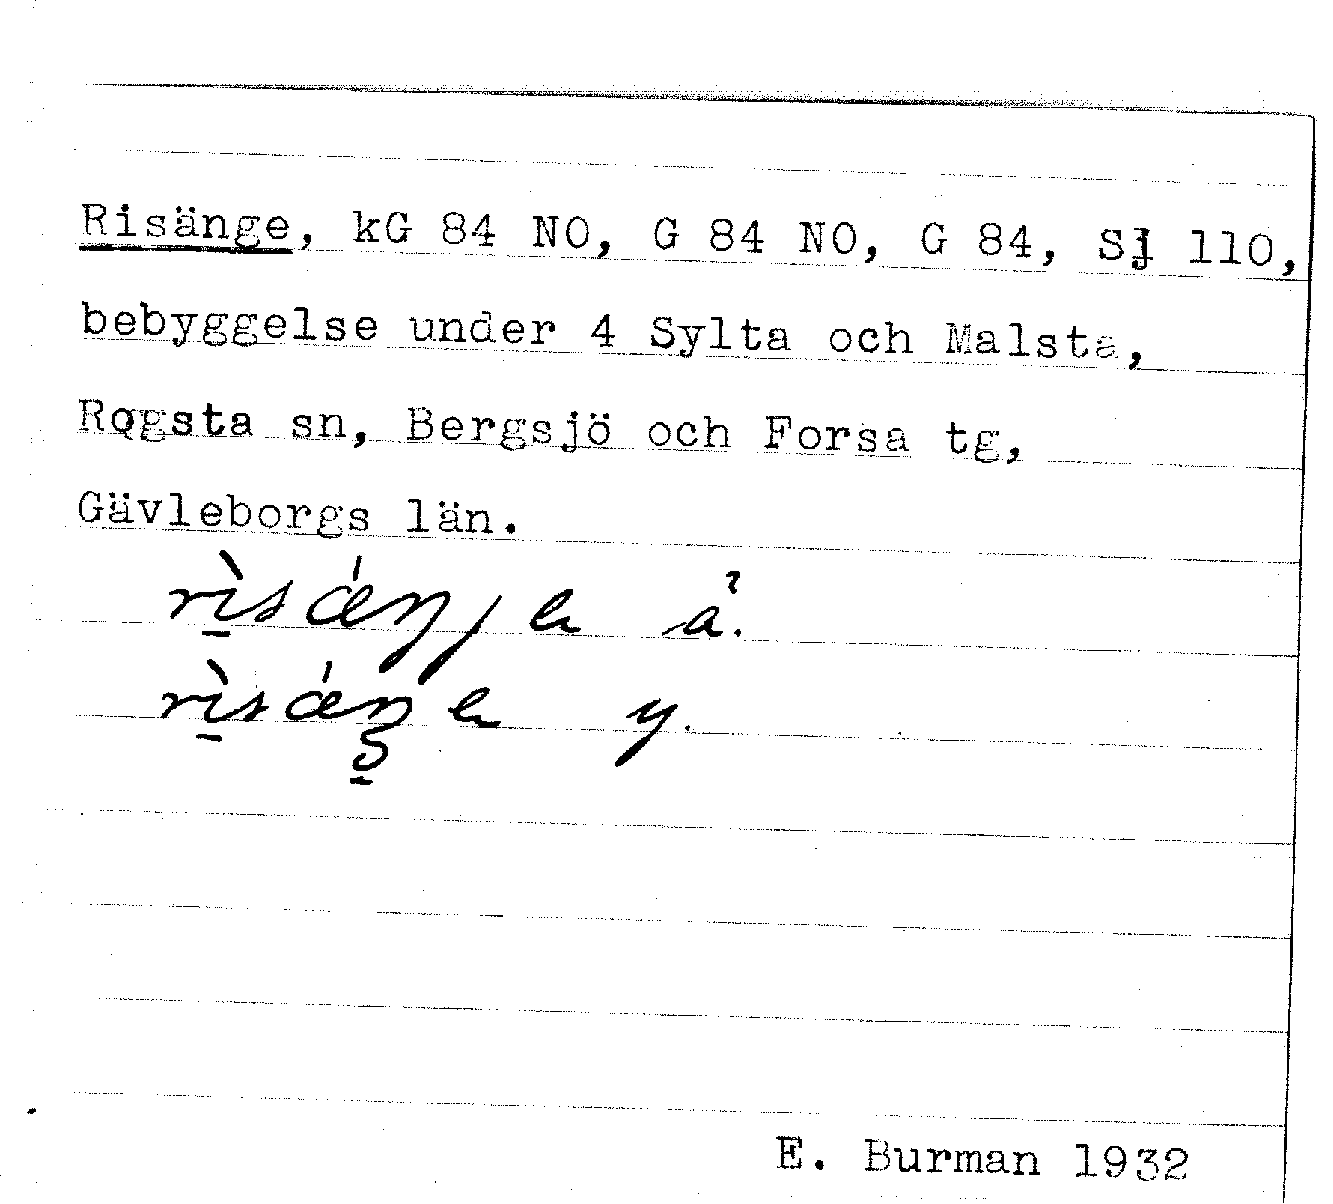 Risänge, kG 84 NO, G 84 NO, G 84, Sj 110,
bebyggelse under 4 Sylta och Malsta,
Rogsta sn, Bergsjö och Forsa tg,
Gävleborgs län.
y.
E. Burman 1932